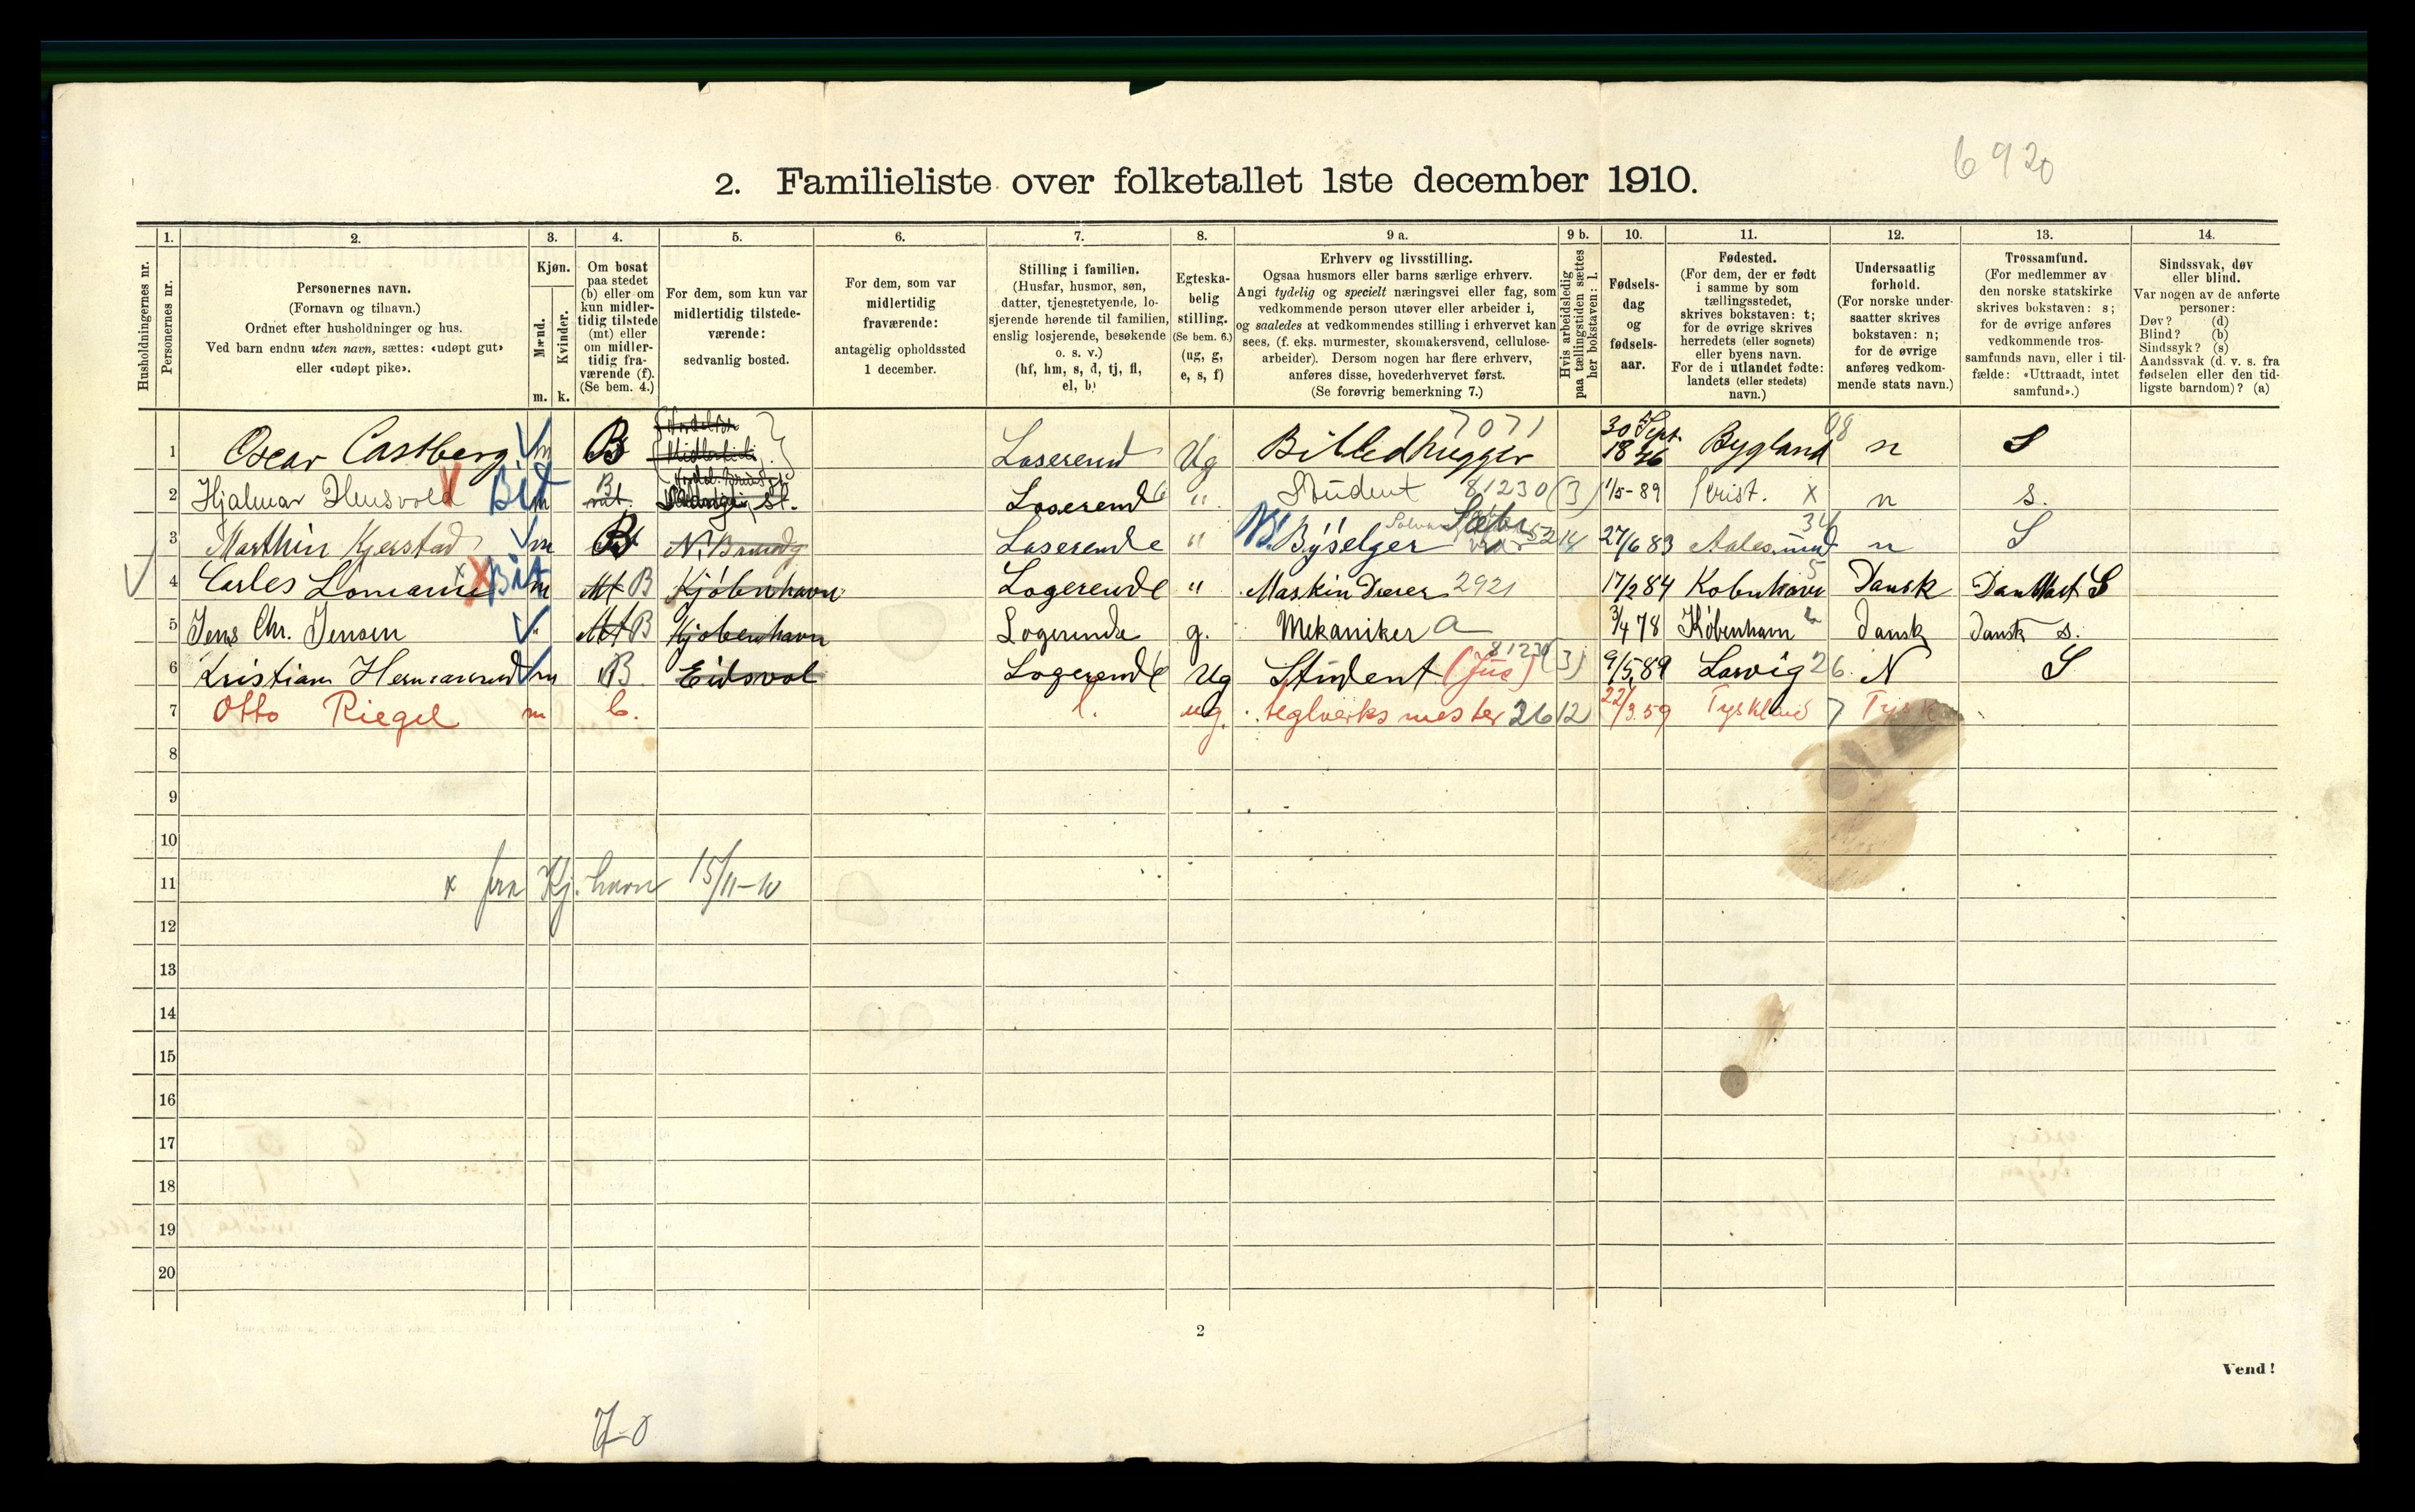 6920
2. Familieliste over folketallet 1ste december 1910.
Husholdningernes nr.
1.
Personernes nr.
2.
Personernes navn.
(Fornavn og tilnavn.)
Ordnet efter husholdninger og hus.
Ved barn endnu uten navn, sættes: «udøpt gut»
eller «udøpt pike».
3.
Kjøn.
Mænd.
Kvinder.
m. k.
4.
Om bosat
paa stedet
(b) eller om
kun midler-
tidig tilstede
(mt) eller
om midler-
tidig fra-
værende (f).
(Se bem. 4.)
5.
For dem, som kun var
midlertidig tilstede-
værende:
sedvanlig bosted.
6.
For dem, som var
midlertidig
fraværende:
antagelig opholdssted
1 december.
7.
Stilling i familien.
(Husfar, husmor, søn,
datter, tjenestetyende, lo-
sjerende hørende til familien,
enslig losjerende, besøkende
o. s. v.)
(hf, hm, s, d, tj, fl,
el, b)
8.
Egteska-
belig
stilling.
(Se bem. 6.)
(ug, g,
e, s, f)
9 a.
Erhverv og livsstilling.
Ogsaa husmors eller barns særlige erhverv.
Angi tydelig og specielt næringsvei eller fag, som
vedkommende person utøver eller arbeider i,
og saaledes at vedkommendes stilling i erhvervet kan
sees, (f. eks. murmester, skomakersvend, cellulose-
arbeider). Dersom nogen har flere erhverv,
anføres disse, hovederhvervet først.
(Se forøvrig bemerkning 7.)
9 b.
Hvis arbeidsledig
paa tællingstiden sættes
her bokstaven: l.
10.
Fødsels-
dag
og
fødsels-
aar.
11.
Fødested.
(For dem, der er født
i samme by som
tællingsstedet,
skrives bokstaven: t;
for de øvrige skrives
herredets (eller sognets)
eller byens navn.
For de i utlandet fødte:
landets (eller stedets)
navn.)
12.
Undersaatlig
forhold.
(For norske under-
saatter skrives
bokstaven: n;
for de øvrige
anføres vedkom-
mende stats navn.)
13.
Trossamfund.
(For medlemmer av
den norske statskirke
skrives bokstaven: s;
for de øvrige anføres
vedkommende tros-
samfunds navn, eller i til-
fælde: «Uttraadt, intet
samfund».)
14.
Sindssvak, døv
eller blind.
Var nogen av de anførte
personer:
Døv? (d)
Blind? (b)
Sindssyk? (s)
Aandssvak (d. v. s. fra
fødselen eller den tid-
ligste barndom)? (a)
1 Oscar Castberg m B Loserend Ug Billedhugger 7071 30 Sept. 1846 Bygland 08 n S
2 Hjalmar Bit m B mt. st. Loserend " Student 81230 (3) 1/5-89 Krist. x n s.
3 Marthin Kjerstad m B N. Brundg Loserende " Byselger 5214 27/6 83 Aalesund 34 n S
4 Carles Lomann x Bit m Mt B Kjöbenhavn Logerende " Maskin Dreier 2921 17/2 84 Kobenhavn 5 Dansk S
5 Jens Chr. Jensen " Mt B Kjöbenhavn Logerende g. Mekaniker a 3/4 78 København Dansk Dansk s.
6 Kristian Hermansrud m B Eidsvol Logerende Ug Student (Jus) 81230 (3) 9/5 89 Larvig 26 N S
7 Otto Riegel m b. l. ug. teglverks mester 2612 22/3.59 Tyskland 7 Tysk
8
9
10
11 x fra Kj.havn 15/11-10
12
13
14
15
16
17
18
19
20
2
Vend!
7-0